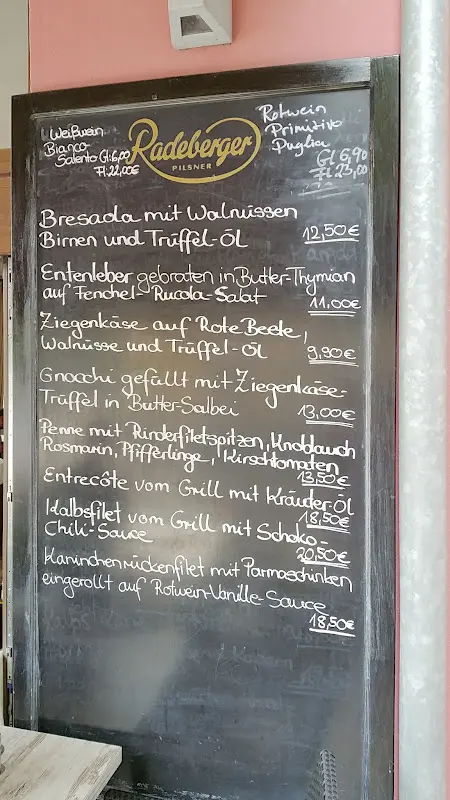 Weißwein
Bianco
Salento Gl. 6,00
Fl. 22,00€
Radeberger
PILSNER
Rotwein
Primitivo
Puglia
Gl 6,90
Fl 23,00
Bresada mit Walnüssen
Birnen und Trüffel-Öl 12,50€
Entenleber gebraten in Butter-Thymian
auf Fenchel-Rucola-Salat 11,00€
Ziegenkäse auf Rote Beete,
Walnüsse und Trüffel-Öl 9,90€
Gnocchi gefüllt mit Ziegenkäse-
Trüffel in Butter-Salbei 13,00€
Penne mit Rinderfiletspitzen, Knoblauch
Rosmarin, Pfifferlinge, Kirschtomaten
13,50€
Entrecôte vom Grill mit Kräuter-Öl
18,50€
Kalbsfilet vom Grill mit Schoko-
Chili-Sauce 20,50€
Kaninchenrückenfilet mit Parmaschinken
eingerollt auf Rotwein-Vanille-Sauce
18,50€